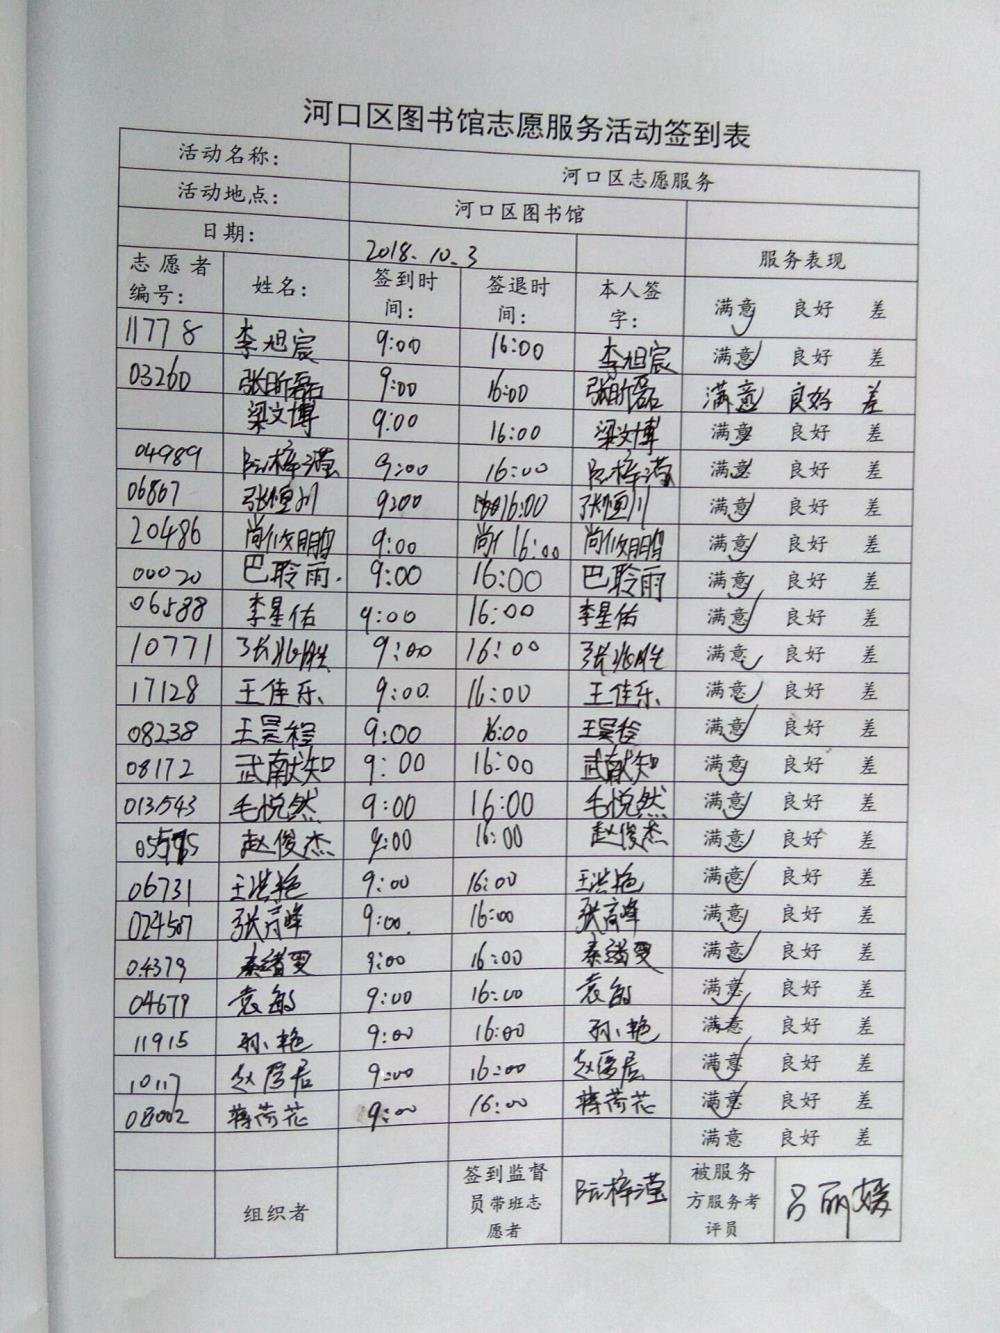 河口区图书馆志愿服务活动签到表
活动名称： 河口区志愿服务
活动地点： 河口区图书馆
日期： 2018.10.3 服务表现
志愿者编号： 姓名： 签到时间： 签退时间： 本人签字： 满意 良好 差
11778 李旭宸 9:00 16:00 李旭宸 满意 良好 差
03260 张昕磊 9:00 16:00 张昕磊 满意 良好 差
梁文博 9:00 16:00 梁文博 满意 良好 差
04989 阮梓滢 9:00 16:00 阮梓滢 满意 良好 差
06867 张恒川 9:00 16:00 张恒川 满意 良好 差
20486 尚修鹏 9:00 16:00 尚修鹏 满意 良好 差
00020 巴聆雨. 9:00 16:00 巴聆雨 满意 良好 差
06588 李星佑 9:00 16:00 李星佑 满意 良好 差
10771 张兆胜 9:00 16:00 张兆胜 满意 良好 差
17128 王佳乐 9:00 16:00 王佳乐 满意 良好 差
08238 王昊程 9:00 16:00 王昊程 满意 良好 差
08172 武献知 9:00 16:00 武献知 满意 良好 差
013543 毛悦然 9:00 16:00 毛悦然 满意 良好 差
赵俊杰 9:00 16:00 赵俊杰 满意 良好 差
06731 王洪艳 9:00 16:00 王洪艳 满意 良好 差
024507 张高峰 9:00 16:00 张高峰 满意 良好 差
04379 9:00 16:00 满意 良好 差
04679 袁敏 9:00 16:00 袁敏 满意 良好 差
11915 孙艳 9:00 16:00 孙艳 满意 良好 差
10117 9:00 16:00 满意 良好 差
08002 蒋荷花 9:00 16:00 蒋荷花 满意 良好 差
满意 良好 差
组织者 签到监督员带班志愿者 阮梓滢 被服务方服务考评员 吕丽媛